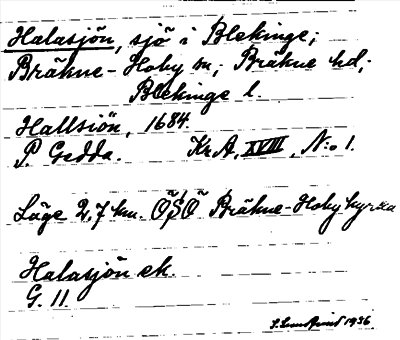 Halasjön, sjö i Blekinge;
Bräkne-Hoby sn; Bräkne hd;
Blekinge l.
Hallsiön, 1684.
P. Gedda. Kr.A, XVIII, N:o 1.
Läge 2,7 km. ÖSÖ Bräkne-Hoby kyrka
Halasjön ek.
G. 11.
S. Lundqvist 1936